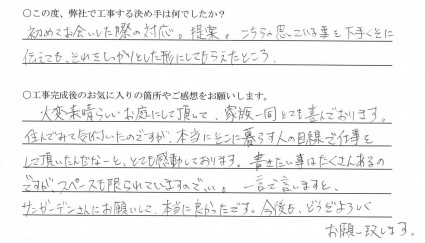 ○この度、弊社で工事する決め手は何でしたか?
初めてお会いした際の対応。提案。こちらの思っている事を下手くそに
伝えても、それをしっかりとした形にしてもらえたところ.
○工事完成後のお気に入りの箇所やご感想をお願いします。
大変素晴らしいお庭にして頂いて、家族一同とても喜んでおります。
住んでみて気付いたのですが、本当にそこに暮らす人の目線で仕事を
して頂いたんだなーと、とても感動しております。書きたい事はたくさんあるの
ですが、スペースも限られていますので…。一言で言いますと、
サンガーデンさんにお願いして、本当に良かったです。今後も、どうぞよろしく
お願い致します.